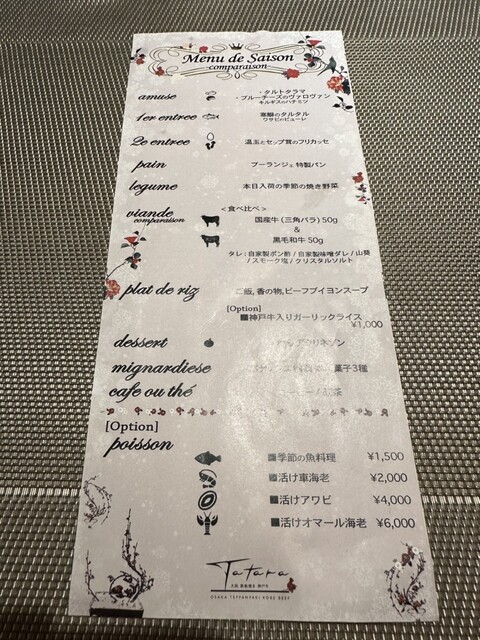 Menu de Saison
comparaison
amuse ・タルトタラマ
・ブルーチーズのヴァロヴァン
キルギスのハチミツ
1er entree 寒鰤のタルタル
ワサビのピューレ
2e entree 温玉とセップ茸のフリカッセ
pain ブーランジェ特製パン
legume 本日入荷の季節の焼き野菜
viande <食べ比べ>
comparaison 国産牛(三角バラ) 50g
&
黒毛和牛 50g
タレ:自家製ポン酢 / 自家製味噌ダレ / 山葵
/ スモーク塩 / クリスタルソルト
plat de riz ご飯,香の物,ビーフブイヨンスープ
[Option]
■神戸牛入りガーリックライス
¥1,000
dessert
mignardiese 菓子3種
cafe ou thé コーヒー / 紅茶
[Option]
poisson
■季節の魚料理 ¥1,500
■活け車海老 ¥2,000
■活けアワビ ¥4,000
■活けオマール海老 ¥6,000
Tatara
OSAKA TEPPANYAKI KOBE BEEF